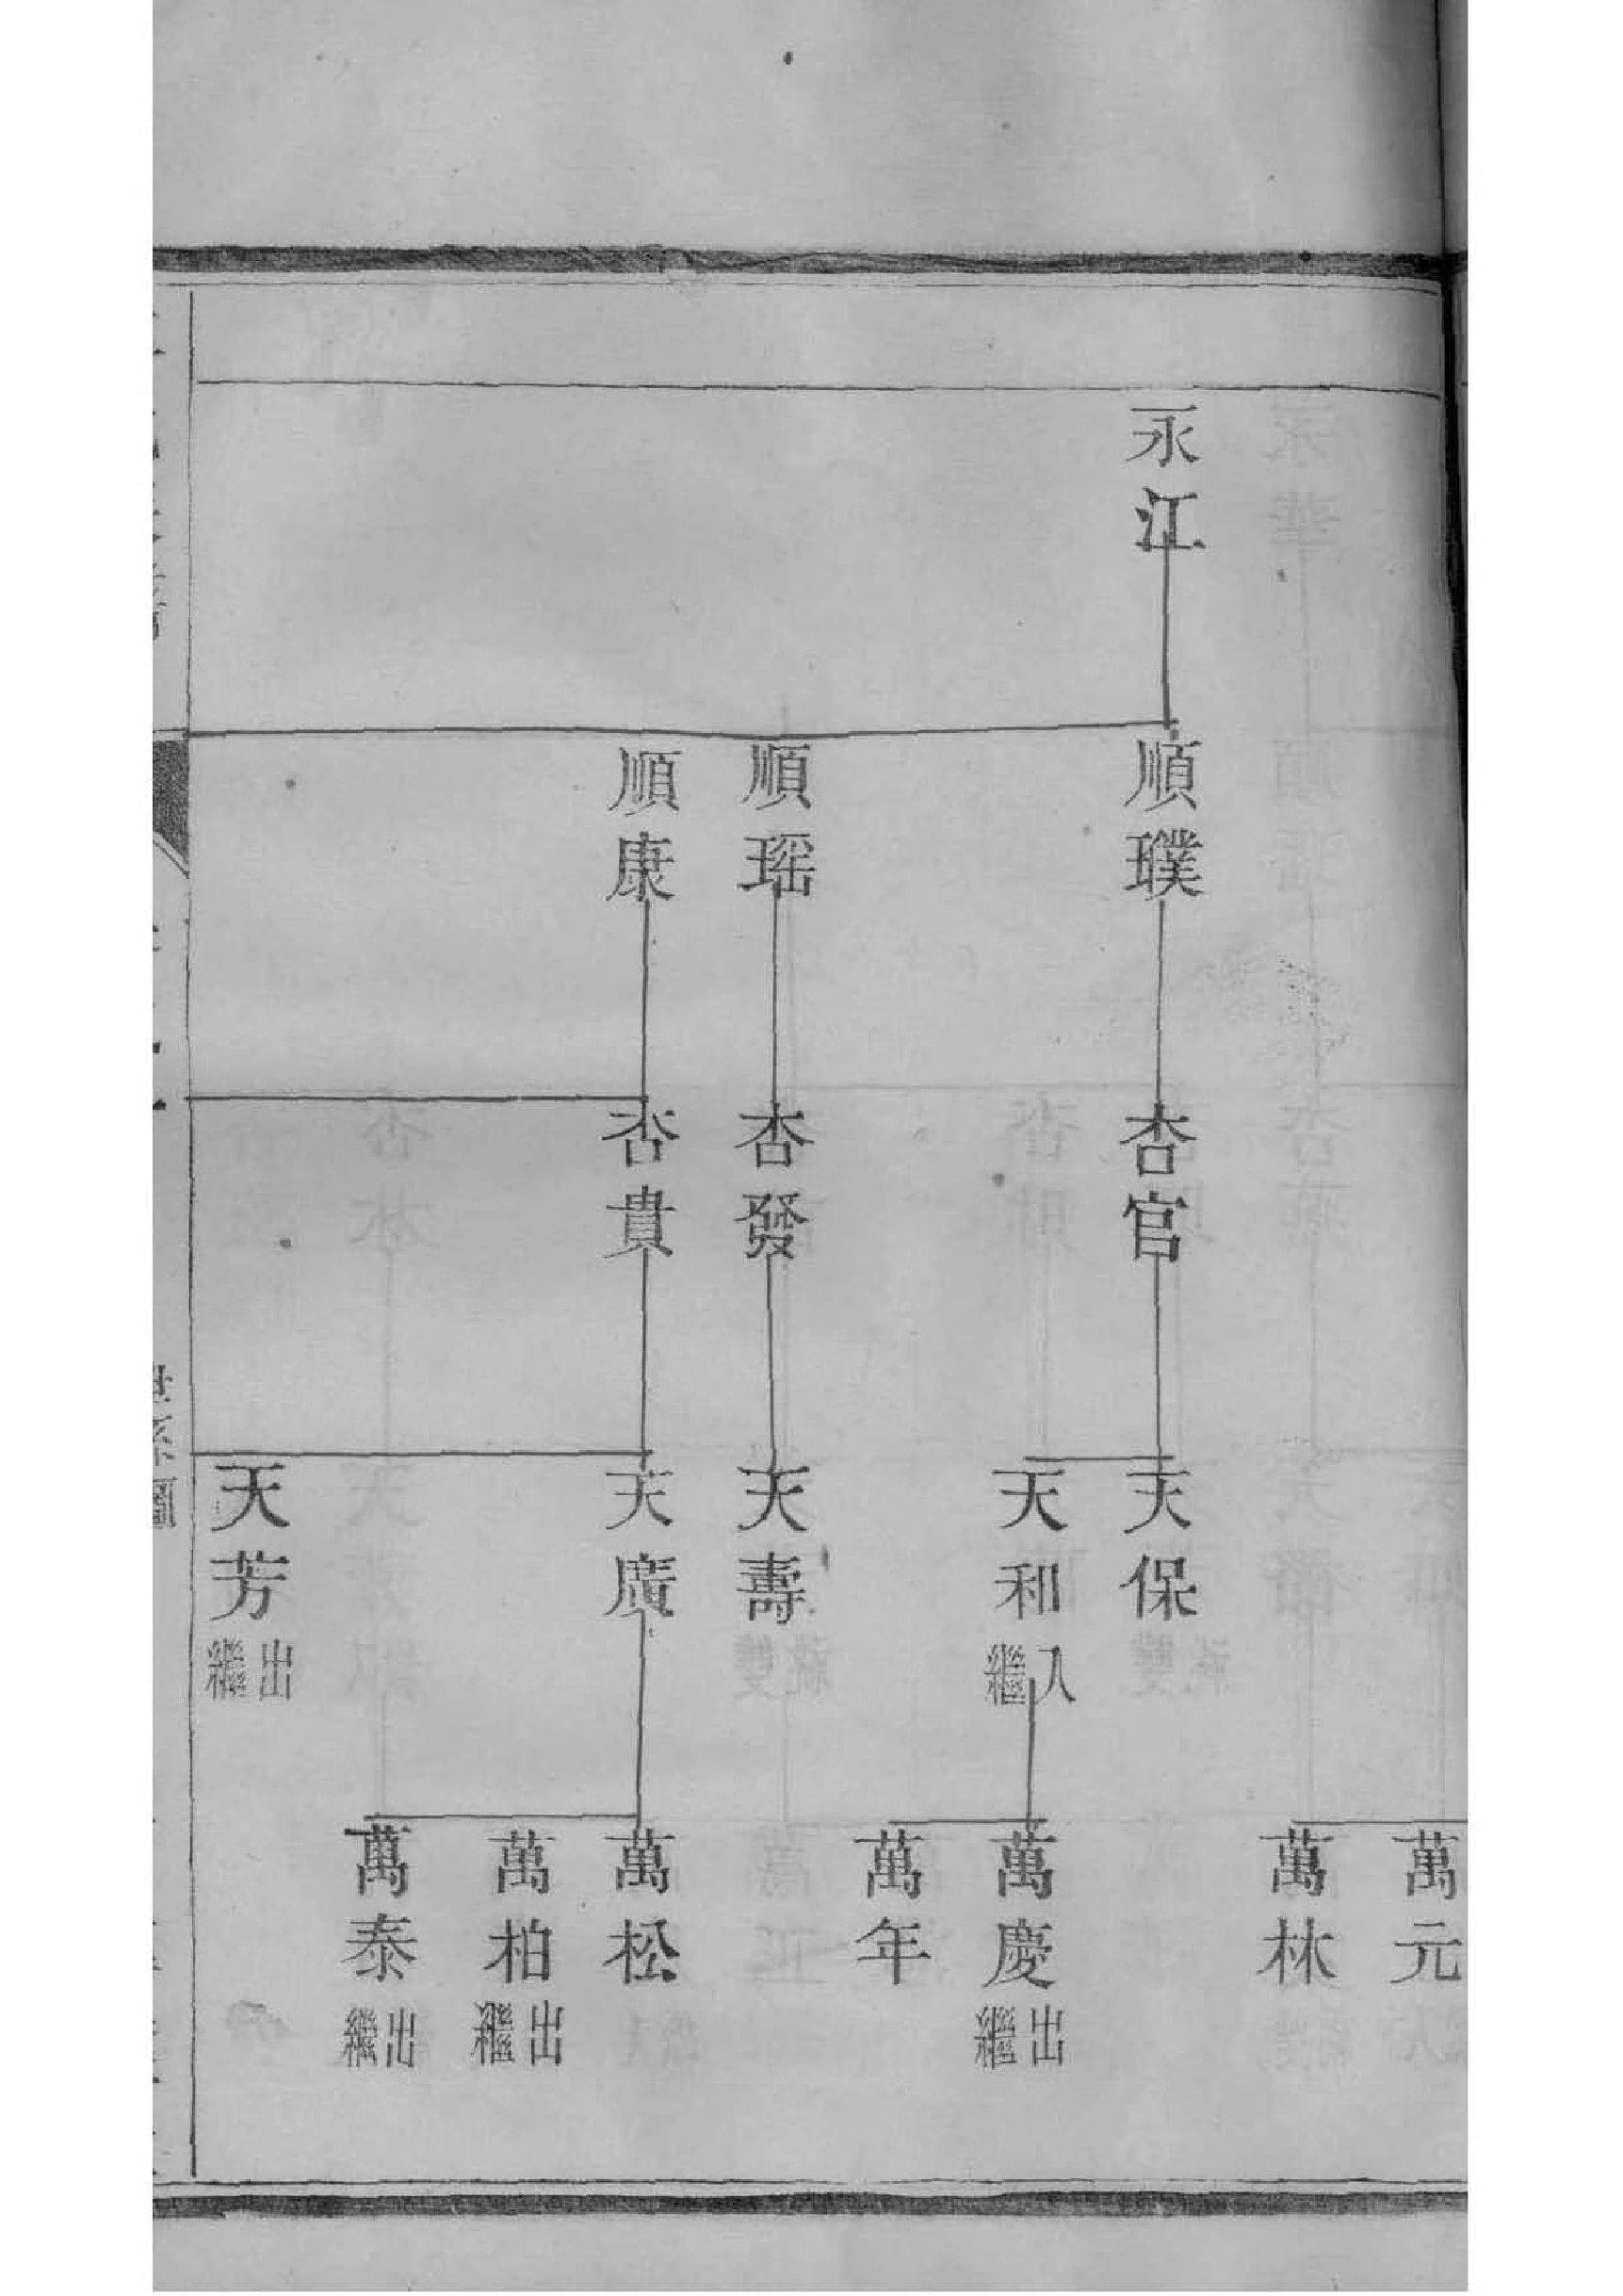 永江
順璞
順瑶
順康
杏官
杏發
杏貴
天保
天和
入繼
天壽
天廣
天芳
出繼
萬元
萬林
萬慶
出繼
萬年
萬松
萬柏
出繼
萬泰
出繼
世系圖